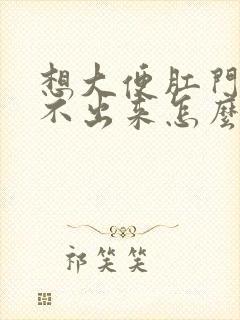 想大便肛門
不出来怎麼
祁笑笑